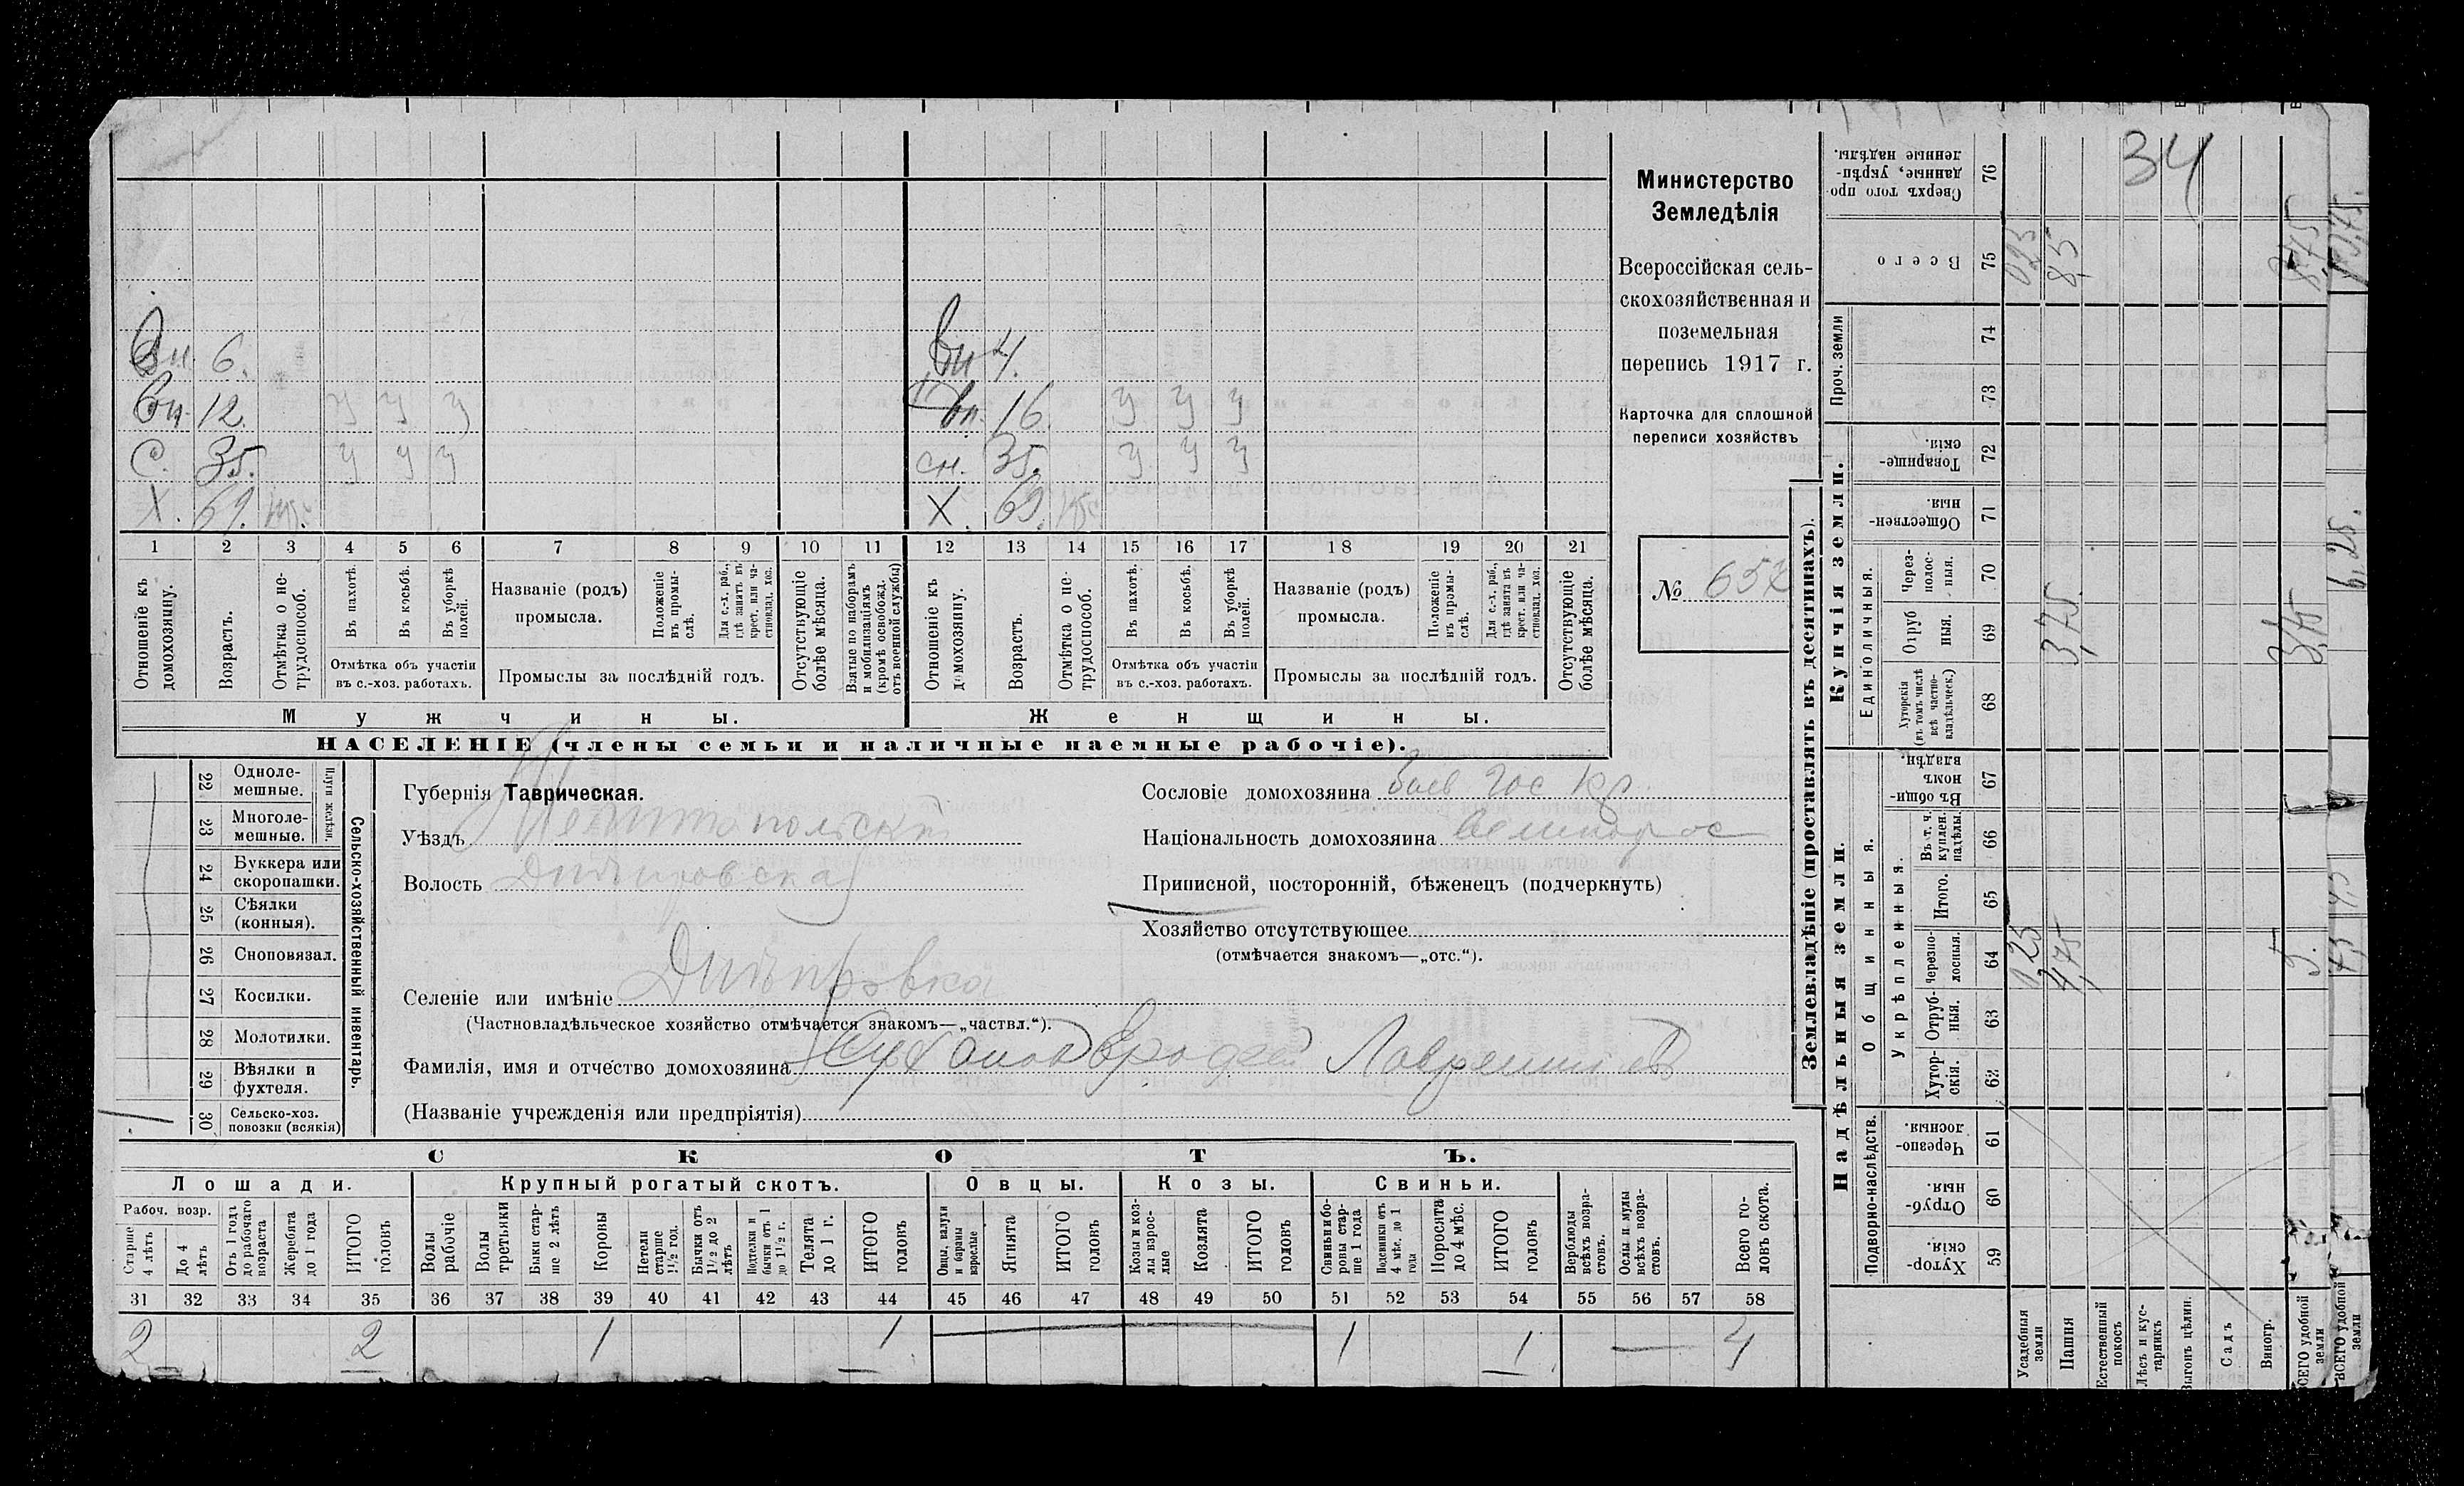 Вн. 6. Вн 4.
Вн. 12. У У У Вн. 16. У У У
С. 35. У У У сн. 35. У У У
Х. 69. Х. 69.
1 2 3 4 5 6 7 8 9 10 11 12 13 14 15 16 17 18 19 20 21
Отношеніе къ домохозяину.
Возрастъ.
Отмѣтка о не-трудоспособ.
Въ пахотѣ.
Въ косьбѣ.
Въ уборкѣ полей.
Отмѣтка объ участіи въ с.-хоз. работахъ.
Названіе (родъ) промысла.
Положеніе въ промы-слѣ.
Для с.-х. раб., гдѣ занятъ въ крест. или ча-стновлад. хоз.
Промыслы за послѣдній годъ.
Отсутствующіе болѣе мѣсяца.
Взятые по наборамъ и мобилизаціямъ (кромѣ освобожд. отъ военной службы)
Отношеніе къ домохозяину.
Возрастъ.
Отмѣтка о не-трудоспособ.
Въ пахотѣ.
Въ косьбѣ.
Въ уборкѣ полей.
Отмѣтка объ участіи въ с.-хоз. работахъ.
Названіе (родъ) промысла.
Положеніе въ промы-слѣ.
Для с.-х. раб., гдѣ занята въ крест. или ча-стновлад. хоз.
Промыслы за послѣдній годъ.
Отсутствующіе болѣе мѣсяца.
Мужчины.
Женщины.
НАСЕЛЕНІЕ (члены семьи и наличные наемные рабочіе).
Министерство
Земледѣлія
Всероссійская сель-
скохозяйственная и
поземельная
перепись 1917 г.
Карточка для сплошной
переписи хозяйствъ
№ 657
22 Одноле-мешные.
23 Многоле-мешные.
Плуги желѣзн.
24 Буккера или скоропашки.
25 Сѣялки (конныя).
26 Сноповязал.
27 Косилки.
28 Молотилки.
29 Вѣялки и фухтеля.
30 Сельско-хоз. повозки (всякія)
1
Сельско-хозяйственный инвентарь.
Губернія Таврическая.
Уѣздъ Мелитопольскій
Волость Днѣпровская
Селеніе или имѣніе Днѣпровка
(Частновладѣльческое хозяйство отмѣчается знакомъ—„частвл.“).
Фамилія, имя и отчество домохозяина
(Названіе учрежденія или предпріятія)
Сословіе домохозяина гос кр.
Національность домохозяина великорос
Приписной, посторонній, бѣженецъ (подчеркнуть)
Хозяйство отсутствующее
(отмѣчается знакомъ—„отс.“).
СКОТЪ.
Лошади. Крупный рогатый скотъ. Овцы. Козы. Свиньи.
Рабоч. возр.
Старше 4 лѣтъ
До 4 лѣтъ
Отъ 1 года до рабочаго возраста
Жеребята до 1 года
ИТОГО головъ
Волы рабочіе
Волы третьяки
Быки стар-ше 2 лѣтъ
Коровы
Нетели старше 1½ год.
Бычки отъ 1½ до 2 лѣтъ
Подтелки и бычки отъ 1 до 1½ г.
Телята до 1 г.
ИТОГО головъ
Овцы, валухи и бараны взрослые
Ягнята
ИТОГО головъ
Козы и коз-лы взрос-лые
Козлята
ИТОГО головъ
Свиньи и бо-ровы стар-ше 1 года
Подсвинки отъ 4 мѣс. до 1 года
Поросята до 4 мѣс.
ИТОГО головъ
Верблюды всѣхъ возра-стовъ.
Ослы и мулы всѣхъ возра-стовъ.
Всего го-ловъ скота.
31 32 33 34 35 36 37 38 39 40 41 42 43 44 45 46 47 48 49 50 51 52 53 54 55 56 57 58
2 2 1 1 1 1 4
Землевладѣніе (проставлять въ десятинахъ).
34
Сверхъ того про-данные, укрѣп-ленные надѣлы. 76
Всего 75 8,5 8,75
Проч. земли 74 73
Купчія земли.
Товарище-скія. 72
Обществен-ныя. 71
Единоличныя.
Через-полос-ныя. 70
Отруб ныя. 69 3,75 3,75 6,25
Хуторскія (въ томъ числѣ всѣ частно-владѣльческ.) 68
Надѣльныя земли.
Общинныя.
Въ общи-номъ владѣн. 67
Укрѣпленныя.
Въ т. ч. куплен. надѣлы. 66
Итого. 65
Черезпо-лосныя. 64 0,25 4,75 5.
Отруб-ныя. 63
Хутор-скія. 62
Подворно-наслѣдств.
Черезпо-лосныя. 61
Отруб-ныя. 60
Хутор-скія. 59
Усадебныя земли
Пашня
Естественный покосъ
Лѣсъ и кус-тарникъ
Выгонъ цѣлин.
Садъ
Виногр.
ВСЕГО удобной земли
ВСЕГО удобной земли